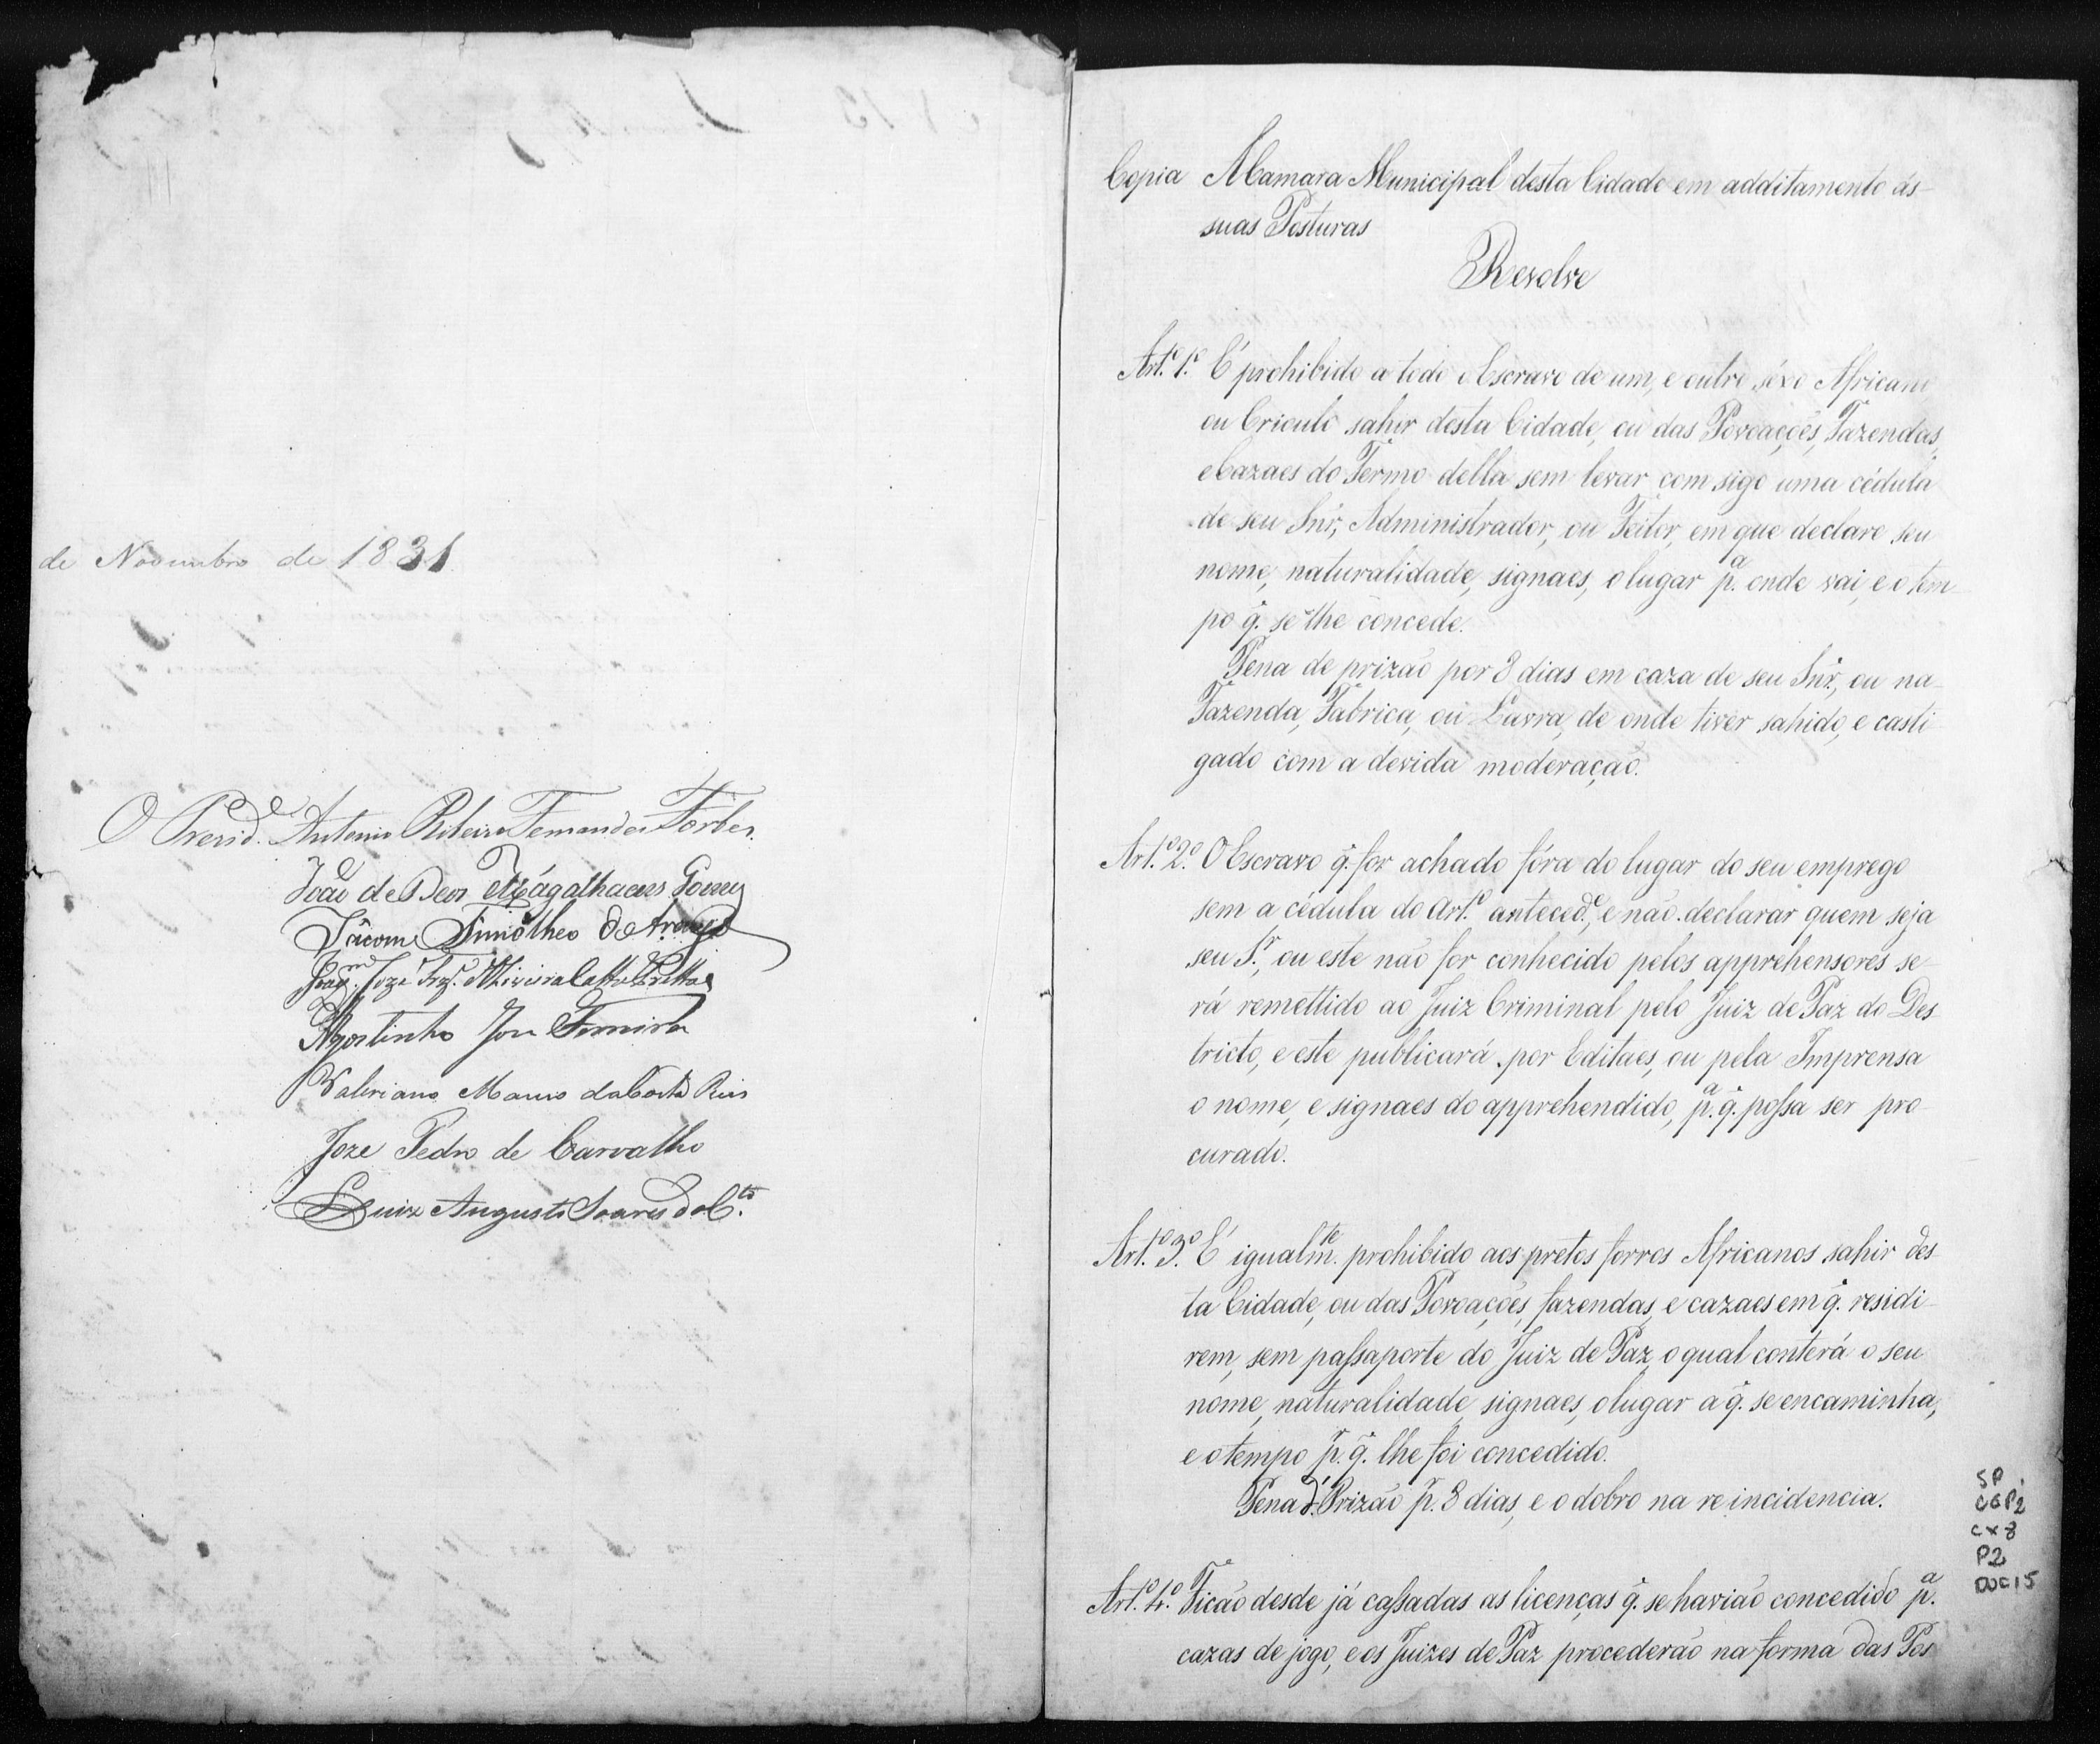 de Novembro de 1831
O Presid.e Antonio Ribeiro Fernandes Forbes.
João de Deos Magalhaens Gomes
Jácome Timotheo de Araujo
Joaq.m Joze
Agostinho Joze Ferreira
Valeriano Manso da Costa Reis
Joze Pedro de Carvalho
Luiz Augusto Soares do C.to
Copia A Camara Municipal desta Cidade em additamento ás
suas Posturas
Resolve
Art.º 1.º É prohibido a todo o Escravo de um, e outro séxo Africano
ou Crioulo sahir desta Cidade, ou das Povoações, Fazendas,
e Cazaes do Termo della sem levar com sigo uma cédula
de seu Snr., Administrador, ou Feitor, em que declare seu
nome, naturalidade, signaes, o lugar p.a onde vai, e o tem
po q. se lhe concede.
Pena de prizão por 8 dias em caza de seu Snr., ou na
Fazenda, Fabrica, ou Lavra, de onde tiver sahido, e casti
gado com a devida moderação.
Art.º 2.º O Escravo q. for achado fóra do lugar do seu emprego
sem a cédula do Art.º anteced.e, e não declarar quem seja
seu S.r, ou este não for conhecido pelos apprehensores se
rá remettido ao Juiz Criminal pelo Juiz de Paz do Des
tricto, e este publicará por Editaes, ou pela Imprensa
o nome, e signaes do apprehendido, p.a q. possa ser pro
curado.
Art.º 3.º É igualm.te prohibido aos pretos forros Africanos sahir des
ta Cidade, ou das Povoações, fazendas, e cazaes em q. residi
rem, sem passaporte do Juiz de Paz, o qual conterá o seu
nome, naturalidade, signaes, o lugar a q. se encaminha,
e o tempo p.r q. lhe foi concedido.
Pena d. Prizão p.r 8 dias, e o dobro na reincidencia.
Art.º 4.º Ficão desde já cassadas as licenças q. se havião concedido p.a
cazas de jogo, e os Juizes de Paz procederão na forma das Pos
SP
CGP2
CX 8
P2
DOC 15